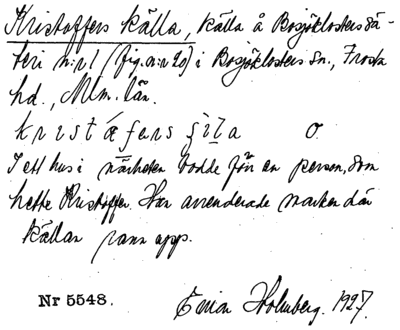 Kristoffers källa, källa å Bosjöklosters sä-
teri n:r 1 (fig. a:r 20) i Bosjöklosters sn., Frosta
hd., Mlm. län.
kristáfars śila o.
I ett hus i närheten bodde förr en person, som
hette Kristoffer. Han arrenderade marken där
källan rann upp.
Nr 5548. Holmberg. 1927.